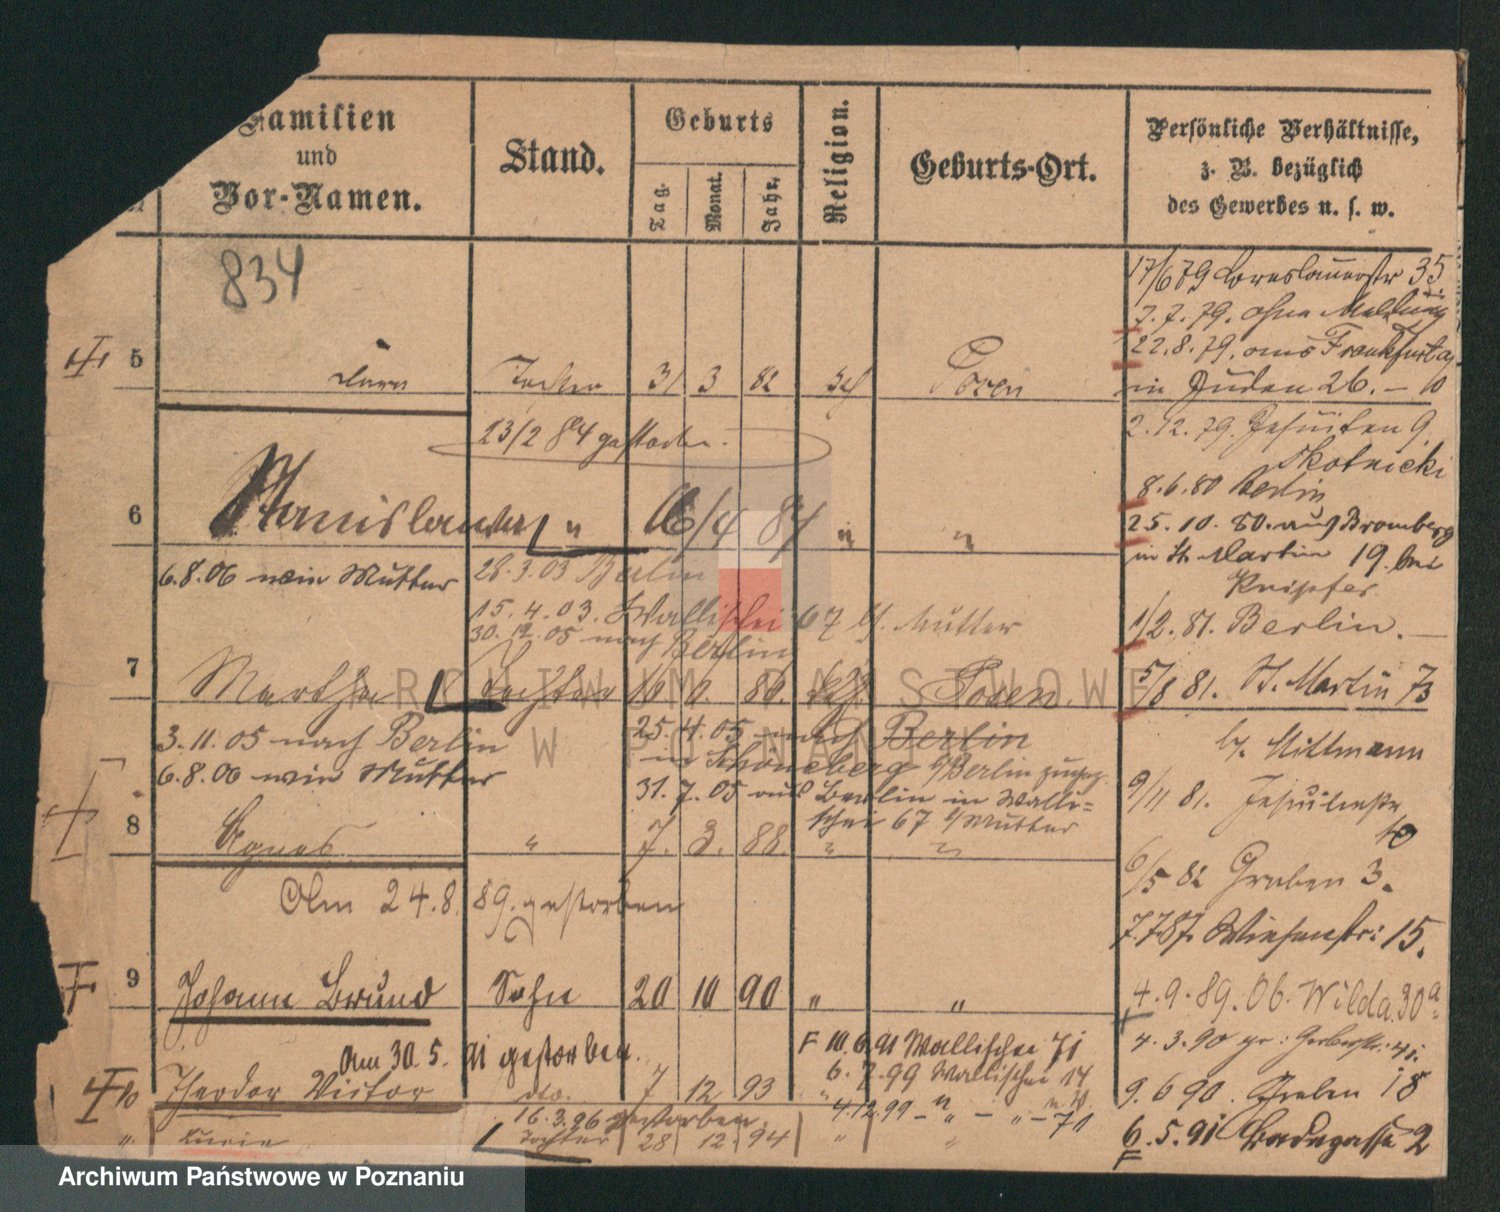 Familien
und
Vor-Namen.
Stand.
Geburts
Tag.
Monat.
Jahr.
Religion.
Geburts-Ort.
Persönliche Verhältnisse,
z. B. bezüglich
des Gewerbes u. s. w.
834
17/6 79 Breslauerstr 35.
7.7.79. ohne Meldung
22.8.79. aus Frankfurt a/
in Juden 26. – 10
5 Tochter 31 3 82 Posen
23/2 84 gestorben.
2.12.79. Jesuiten 9.
Skotnicki
8.6.80 Berlin
6 Stanislaw " 16/4 84 " "
25.10.80. aus Bromberg
in St. Martin 19. bei
6.8.06 Mutter
28.3.03 Berlin
15.4.03. Wallischei 67 b/ Mutter
30.12.05 nach Berlin
1/2.81. Berlin. –
7 Martha Tochter 86. Posen.
5/8 81. St. Martin 73
b/. Mittmann
3.11.05 nach Berlin
6.8.06 Mutter
25.4.05 nach Berlin
in Schöneberg b/Berlin
31.7.05 aus Berlin in Walli=
schei 67 b/Mutter
9/11 81. Jesuitenstr
10
8 Agnes " 7. 3. 88. " "
6/5 82 Graben 3.
Am 24.8. 89. gestorben
7.7.87. Wiesenstr: 15.
9 Johann Bruno Sohn 20 10 90 " "
4.9.89. Ob. Wilda 30a.
Am 30.5. 91 gestorben.
F 10.6.91 Wallischei 71
4.3.90 gr: Gerberstr: 41.
6.7.99 Wallischei 14
10 Theodor Victor dto. 7 12 93 "
9.6 90. Graben 18
4.12.99 – " – " – 71
16.3.96 gestorben.
" Tochter 28 12 94 " "
6.5.91 Badegasse 2
F
ARCHIWUM PAŃSTWOWE
W POZNANIU
Archiwum Państwowe w Poznaniu